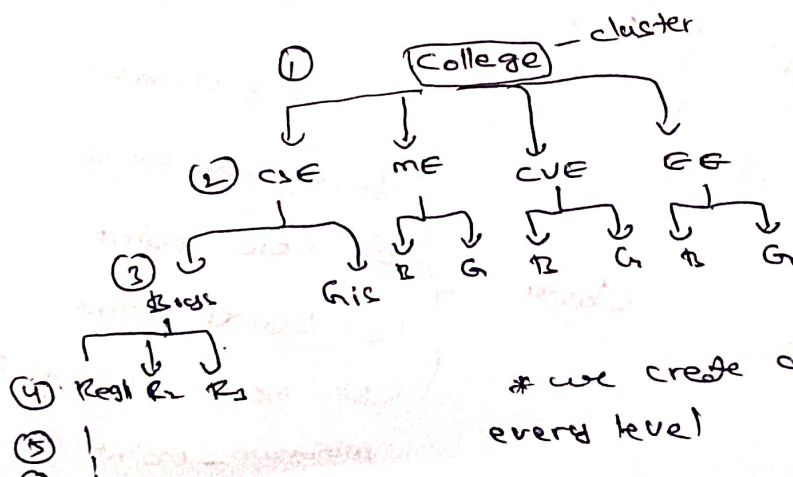 ① College – cluster
② CSE ME CVE EE
③ Boys Girls B G B G B G
④ Reg1 R2 R3
* we create
every level
⑤